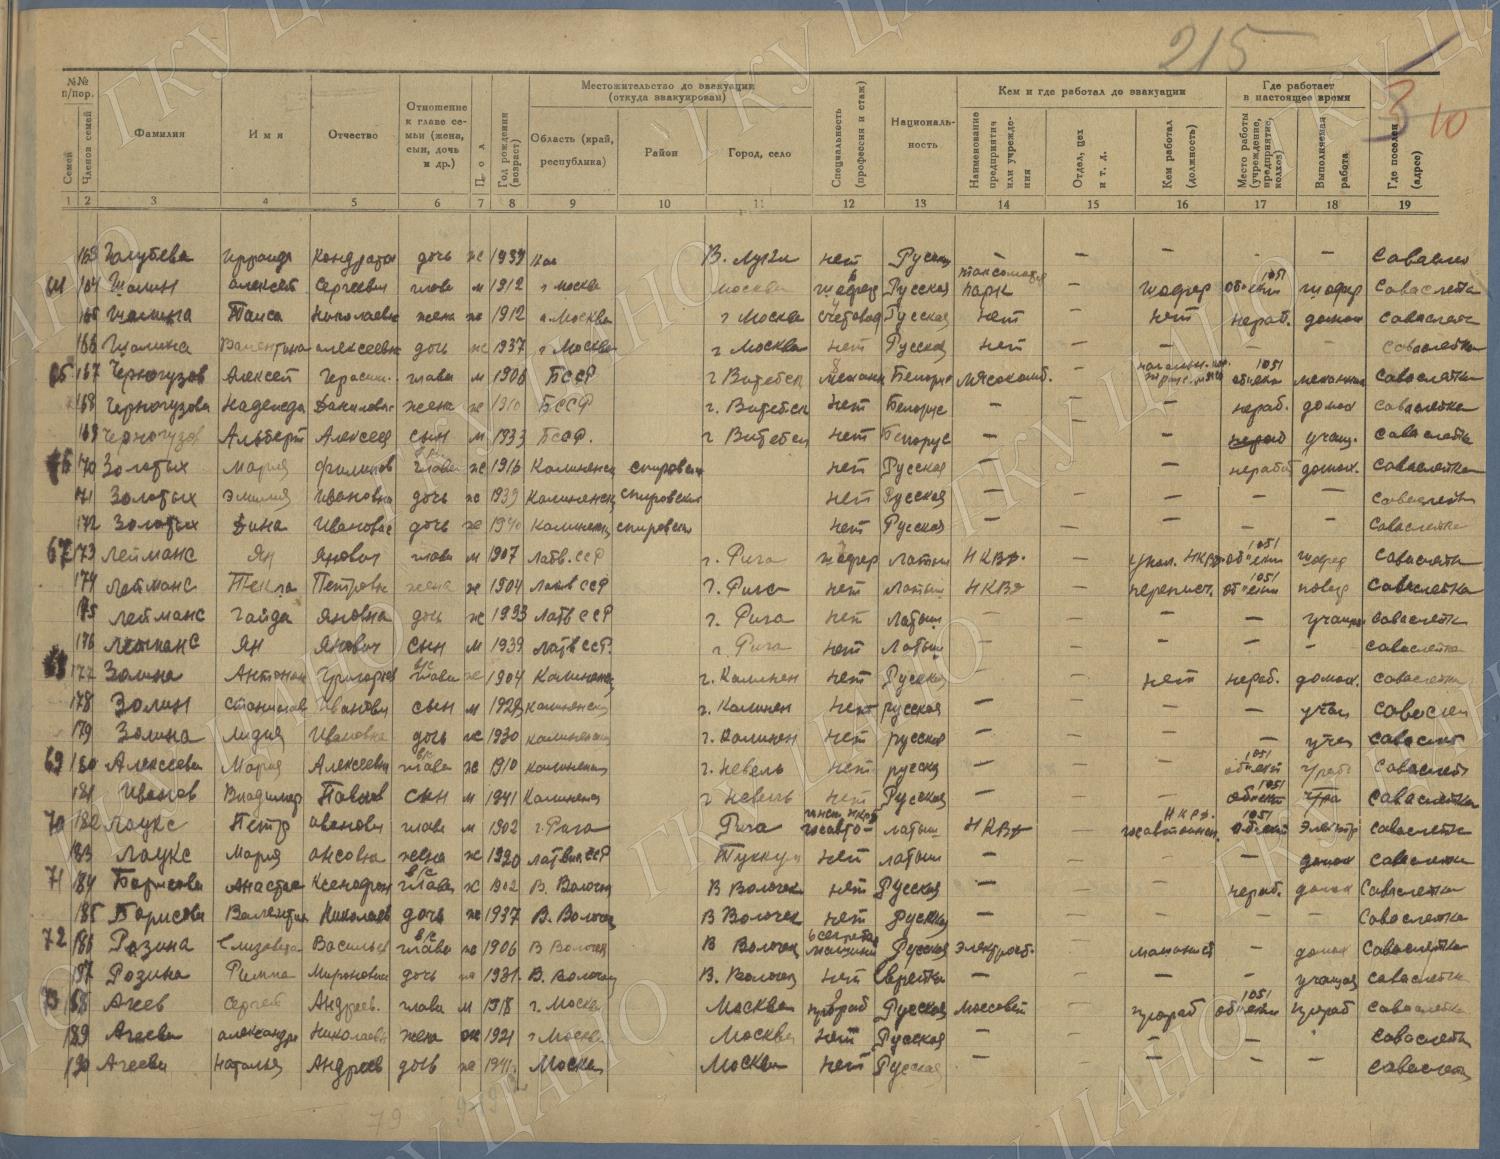 215
3 10
№№ п/пор.
Семей
Членов семей
Фамилия
Имя
Отчество
Отношение к главе семьи (жена, сын, дочь и др.)
Пол
Год рождения (возраст)
Местожительство до эвакуации (откуда эвакуирован)
Область (край, республика)
Район
Город, село
Специальность (профессия и стаж)
Националь-ность
Кем и где работал до эвакуации
Наименование предприятия или учрежде-ния
Отдел, цех и т. д.
Кем работал (должность)
Где работает в настоящее время
Место работы (учреждение, предприятие, колхоз)
Выполняемая работа
Где поселен (адрес)
1 2 3 4 5 6 7 8 9 10 11 12 13 14 15 16 17 18 19
163 Голубева дочь ж 1939 В. Луки нет — — — —
64 164 Шалин Алексей Сергеевич глава м 1912 г Москва Москва шофер Русская парк — шофер 1051 объекты шофер Саваслейка
165 Шалина Таиса Николаевн жена ж 1912 г. Москва г Москва счетовод Русская нет — нет нераб. домох Саваслейк
166 Шалина Валентина Алексеевн дочь ж 1937 г Москва г Москва нет Русская нет — — — — Саваслейка
65 167 Черногузов Алексей Герасим. глава м 1906 БССР г Витебск механик Белорус Мясокомб. — 1051 объекты механик Саваслейка
168 Черногузова Надежда Даниловн жена ж 1910 БССР г. Витебск нет Белорус — — — нераб. домох Саваслейка
169 Черногузов Альберт Алексеев сын м 1933 БССР. г Витебск нет Белорус — — — учащ. Саваслейка
66 170 Золотых Мария Филипов глава ж 1916 Калининск спировск нет Русская — — — нераб домох. Саваслейка
171 Золотых Эмилия Ивановна дочь ж 1939 Калининск спировский нет Русская — — — — — Саваслейка
172 Золотых Дина Ивановн дочь ж 1940 Калининск спировск нет Русская — — — — — Саваслейка
67 173 Лейманс Ян Янович глава м 1907 Латв. ССР г. Рига шофер латыш НКВД. — 1051 объекты шофер Саваслейка
174 Лейманс Текла Петровн жена ж 1904 Латв ССР г. Рига нет латыш НКВД — 1051 объекты повар Саваслейка
175 Лейманс Гайда Яновна дочь ж 1933 Латв ССР г. Рига нет латыш — — — — учащ Саваслейка
176 Лейманс Ян Янович сын м 1939 Латв ССР. г Рига нет латыш — — — — — Саваслейка
68 177 Залина Антонин Григорьев в/с глава ж 1904 Калининск г. Калинин нет Русская — — нет нераб. домох. Саваслейка
178 Залин Станислав Иванови сын м 1928 Калининск г. Калинин нет русская — — — — учащ Саваслей
179 Залина Лидия Ивановна дочь ж 1930 Калининск г. Калинин нет русская — — — — учащ Саваслей
69 180 Алексеева Мария Алексеевн в/с глава ж 1910 Калининск г. Невель нет русская — — — 1051 объект ч/раб Саваслей
181 Иванов Владимир Павлов сын м 1941 Калининск г Невель нет Русская — — — 1051 объект Саваслейка
70 182 Лаукс Петр глава м 1902 г. Рига Рига латыш НКВД — НКВД. 1051 объект электр Саваслейк
183 Лаукс Мария ансовна жена ж 1920 Латвия ССР нет латыш — — — домох Саваслейк
71 184 Борисова Анастас Ксенофон в/с глава ж 1902 В. Волочек В Волочек нет Русская — — — нераб. домох Саваслейка
185 Борисова Валентин Николаев дочь ж 1937 В. Волочек В Волочек нет Русская — — — — — Саваслейка
72 186 Розина Елизавета Васильев в/с глава ж 1906 В Волочек В Волочек Русская — — домох Саваслейка
187 Розина Римма Мироновна дочь ж 1931. В. Волочек В. Волочек нет еврейка — — — — учащая Саваслейка
73 188 Агеев Сергей Андреев. глава м 1918 г. Москв Москва прораб Русская Моссовет — прораб 1051 объекты прораб Саваслейка
189 Агеева Александр Николаевн жена ж 1921 г Москва Москва нет Русская — — — — Саваслейк
190 Агеева Наталья Андреев дочь ж 1941. Москва Москва нет Русская — — — — — Саваслейк
79
ГКУ ЦАНО